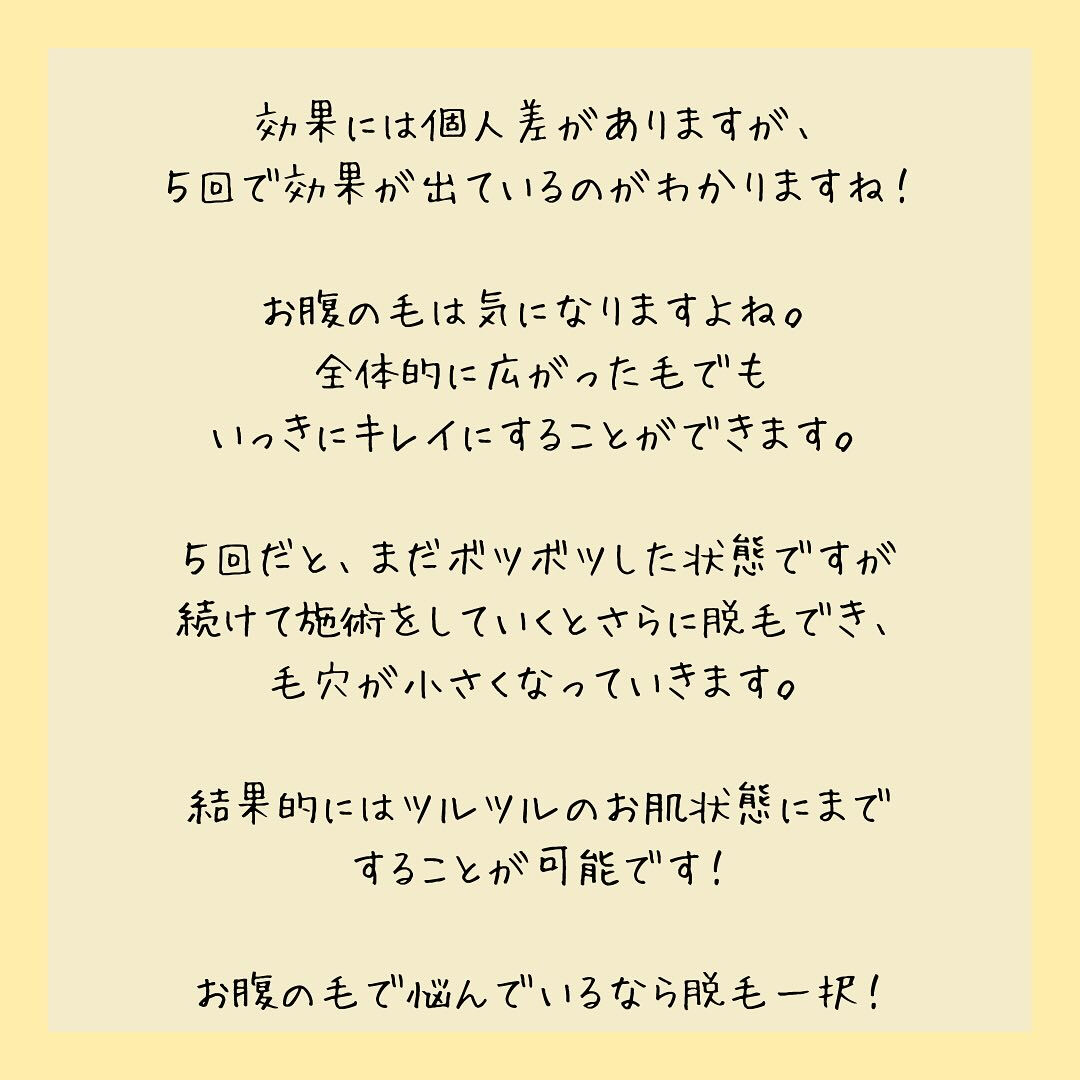 効果には個人差がありますが、
5回で効果が出ているのがわかりますね！
お腹の毛は気になりますよね。
全体的に広がった毛でも
いっきにキレイにすることができます。
5回だと、まだボツボツした状態ですが
続けて施術をしていくとさらに脱毛でき、
毛穴が小さくなっていきます。
結果的にはツルツルのお肌状態にまで
することが可能です！
お腹の毛で悩んでいるなら脱毛一択！